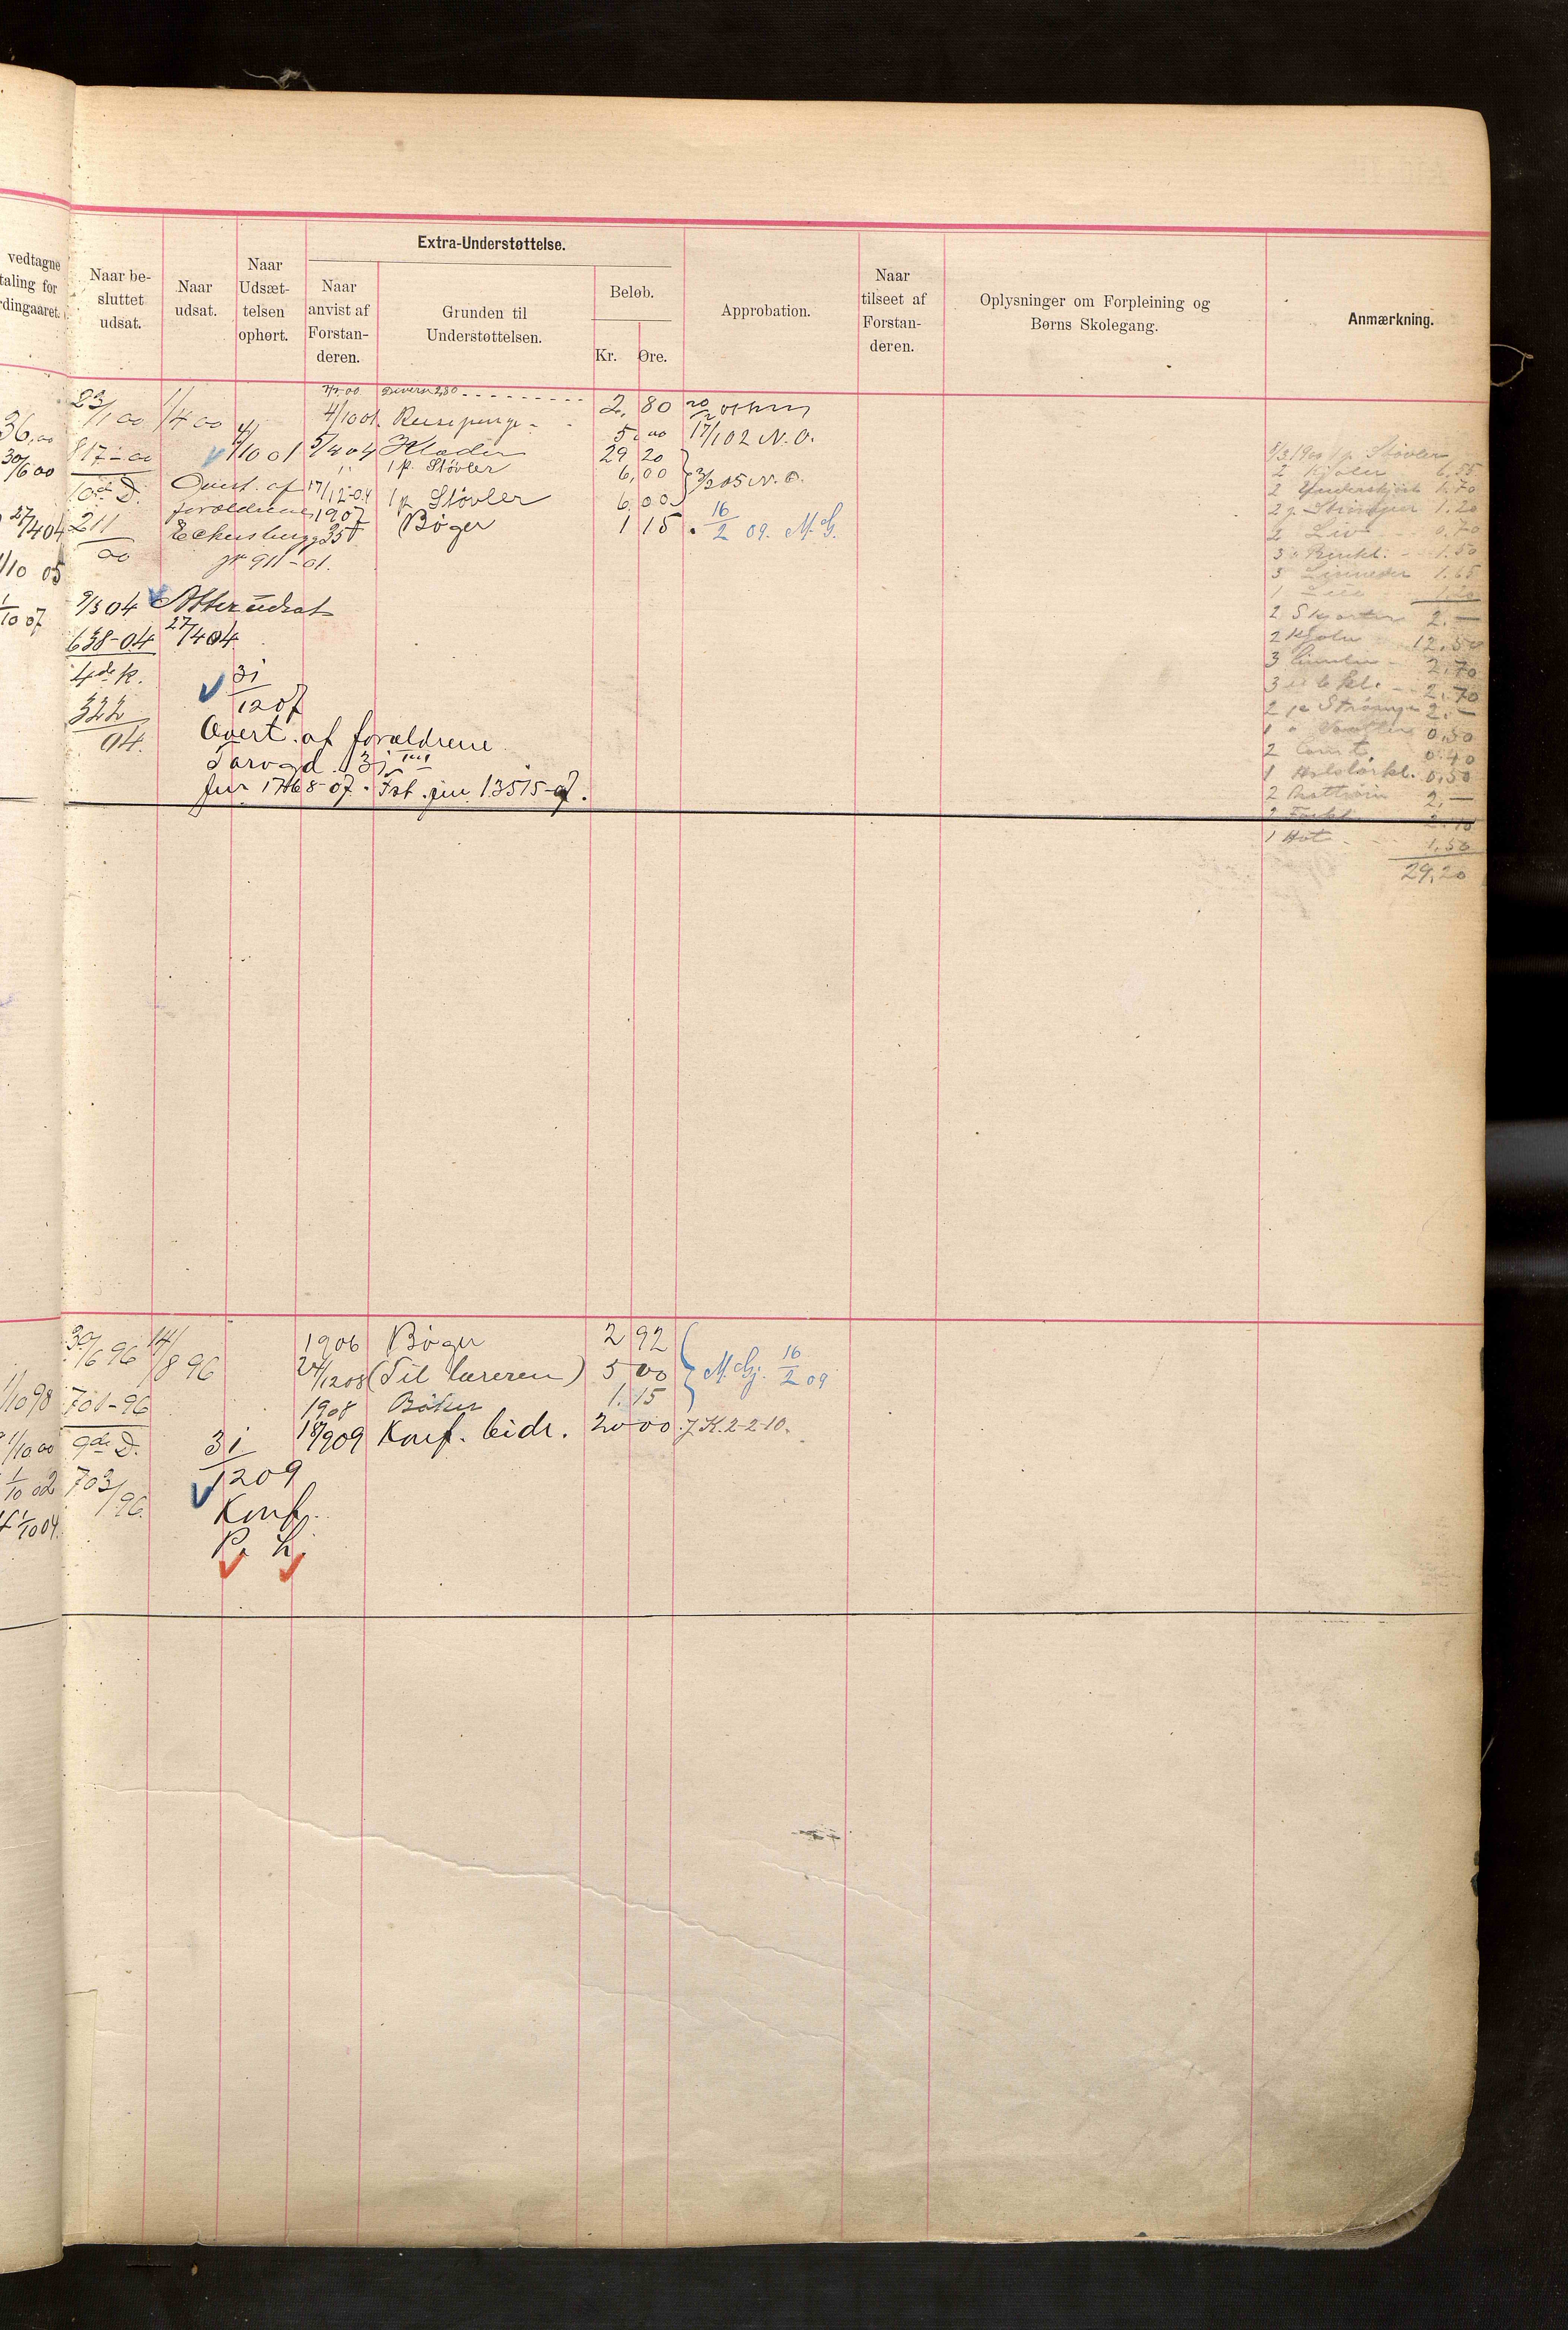 vedtagne
taling for
rdingaaret.
Naar be-
sluttet
udsat.
Naar
udsat.
Naar
Udsæt-
telsen
ophørt.
Extra-Understøttelse.
Naar
anvist af
Forstan-
deren.
Grunden til
Understøttelsen.
Beløb.
Kr. Øre.
Approbation.
Naar
tilseet af
Forstan-
deren.
Oplysninger om Forpleining og
Børns Skolegang.
Anmærkning.
36,00
30/6 00
27/4 04
1/10 05
1/10 07
23/1 00
817-00
10de D.
211/00
9/3 04
638-04
4de K.
322/04.
1/4 00
4/10 01
Overt. af
forældrene
Eckersbergg 35 I
jr 911-01.
Atter udsat
27/4 04
31/12 07
Overt. af forældrene
Jur 17468-07. Fst. jur 13515-07.
Diverse 2,80 2, 80
4/10 01. Reisepenge 5,00 17/1 02 N.O.
5/4 04 Klæder 29 20
" 1 p. Støvler 6,00 3/2 05 N.O.
17/12-04 1 p Støvler 6,00
1907 Bøger 1 15 16/2 09. M.G.
8/3 1900 1 p. Støvler 6.55
2 Kjoler
2 Underskjørt 1.70
2 p. Strømper 1.20
2 Liv 0.70
3 Benkl. 1.50
3 Linneder 1.65
1.20
2 Skjorter 2.-
2 Kjoler 12.50
3 2.70
3 kl. 2.70
2 pr Strømper 2.-
1 0,50
2 0.40
1 Halstørkl. 0,50
2 2,-
2 Forkl.
1 Hat 1.50
29,20
1/10 98
1/10.00
1/10 02
1/10 04.
30/6 96
701-96
9de D.
703/96.
14/8 96
31/12 09
Konf.
P. L.
1906 Bøger 2 92
24/12 08 (Til læreren) 5 00 M.Gj. 16/2 09
1908 Bøker 1.15
18/9 09 Konf. bidr. 20 00 J.K. 2-2-10.